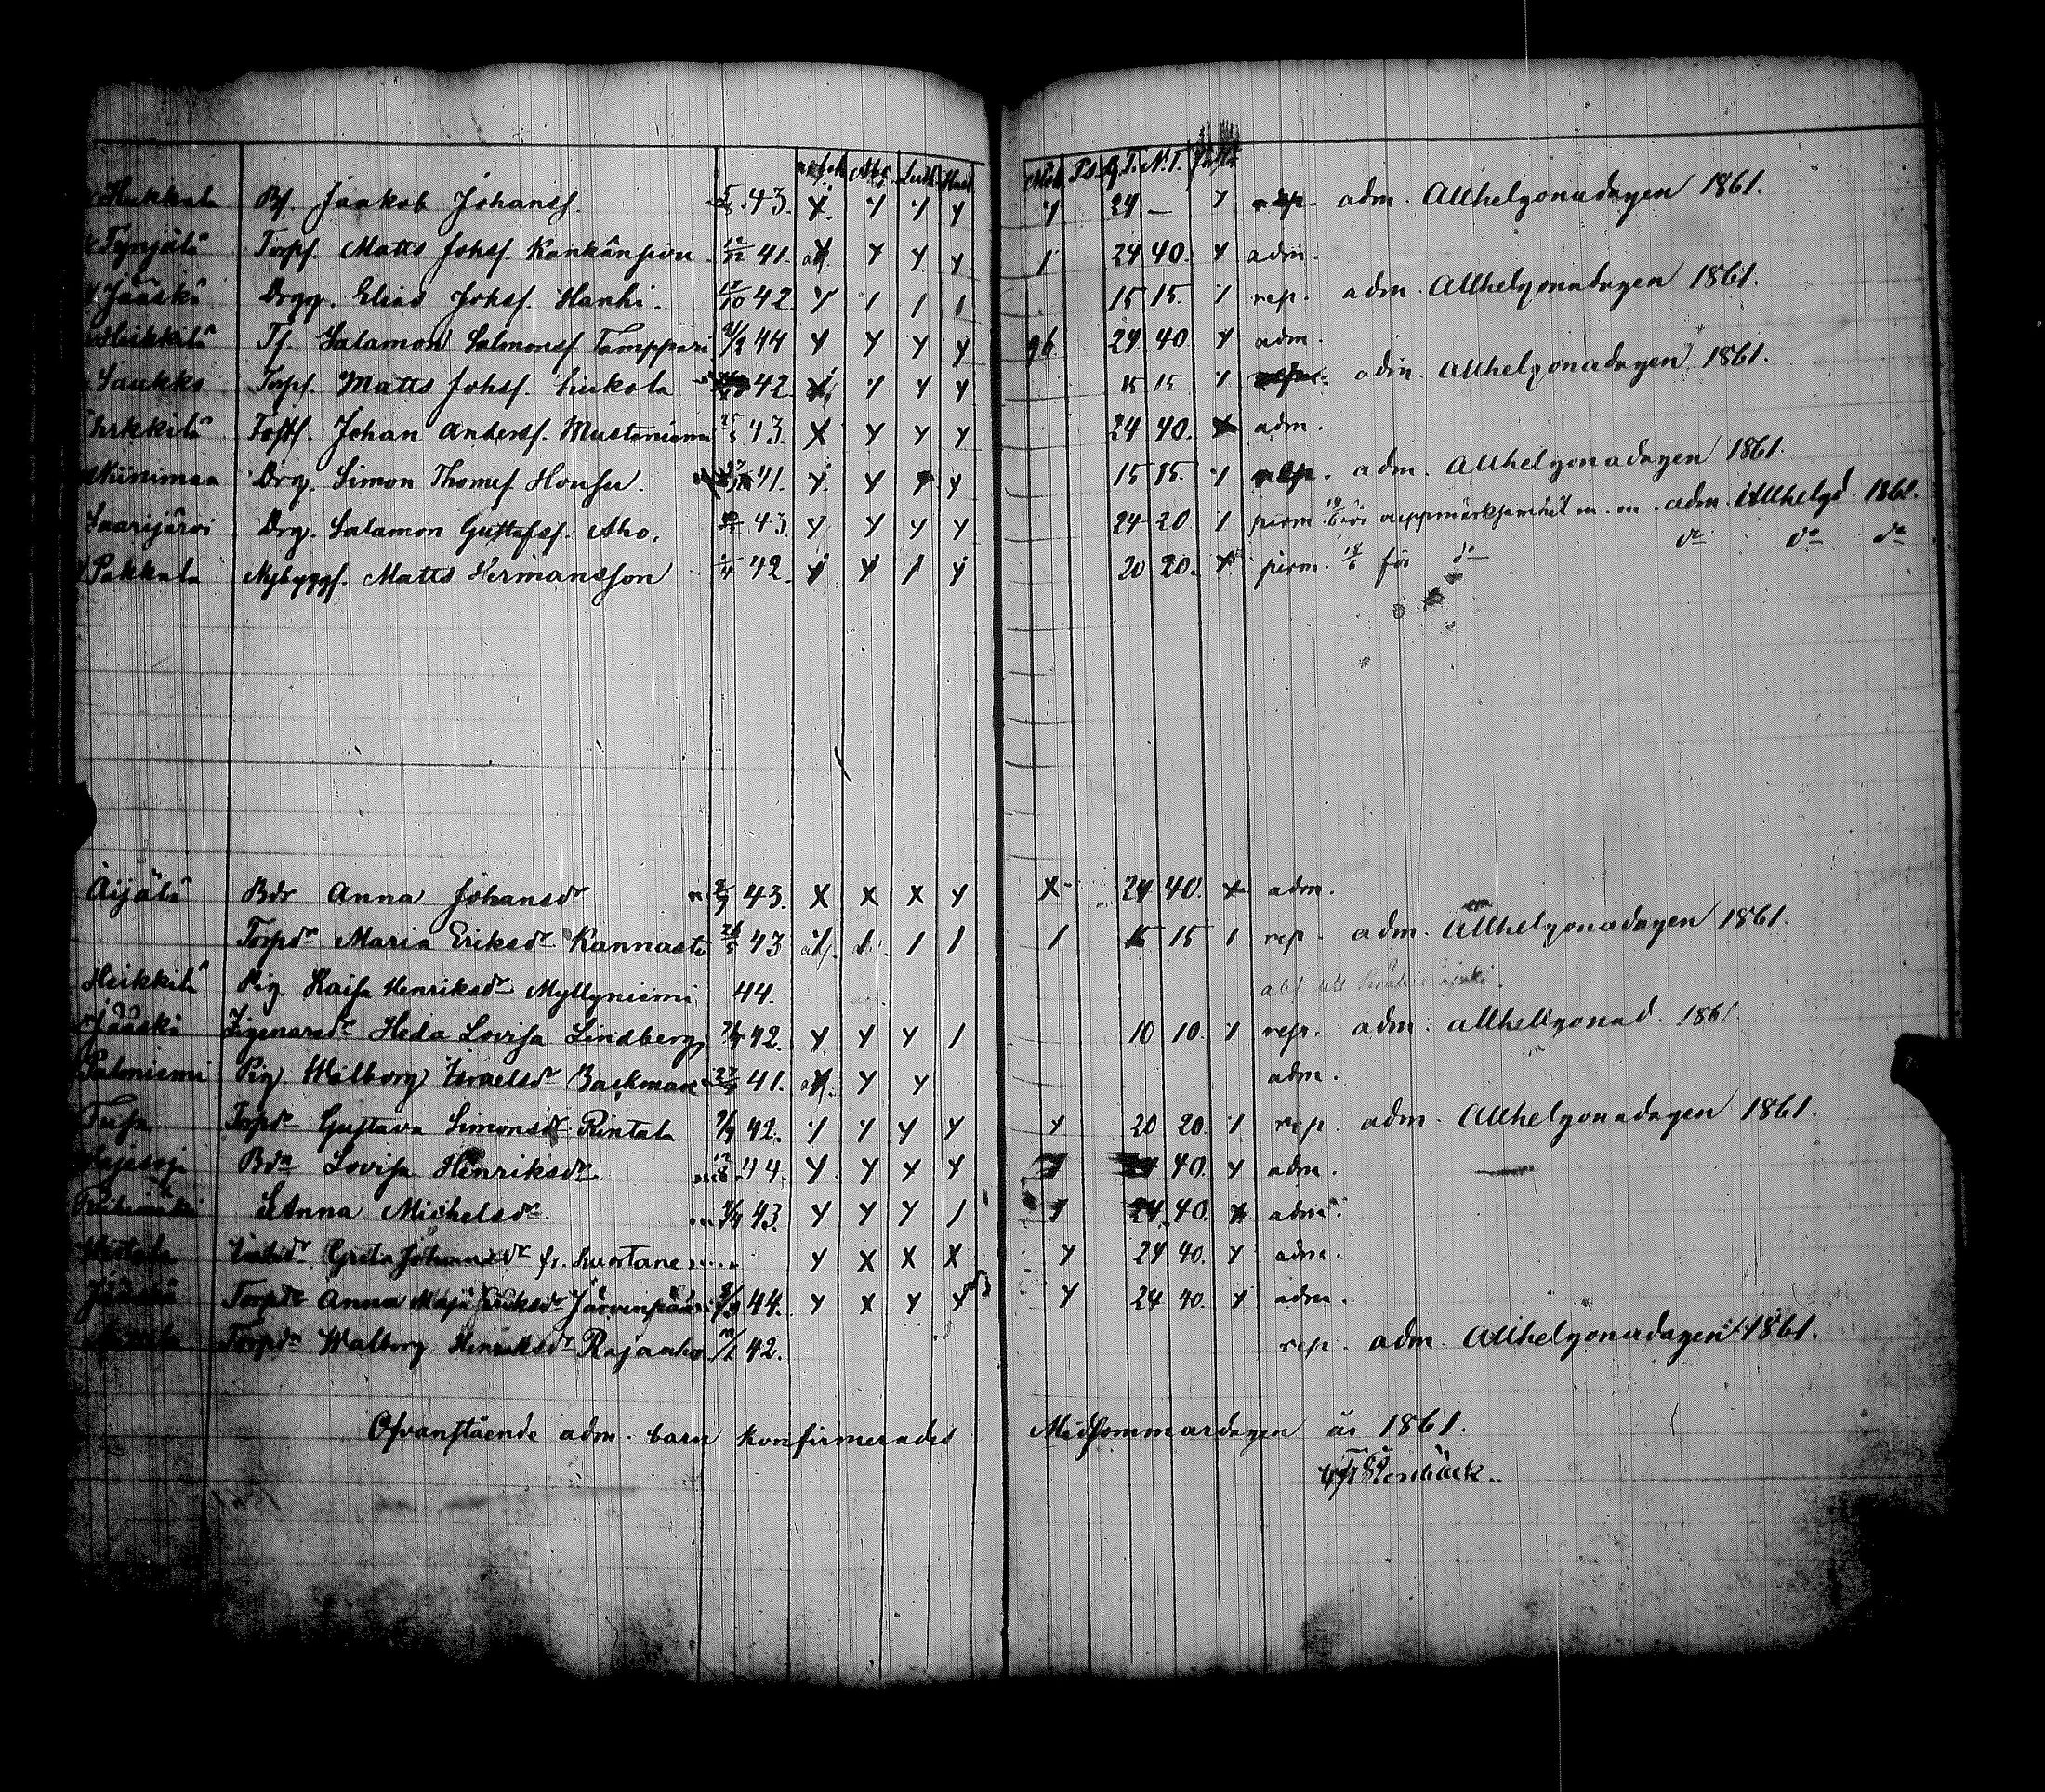 Abc. Luth. Hust. N.T.
Hukkala Bs. Jaakob Johanss. 43. Y. Y Y Y Y 24 — Y rep. adm. Allhelgonadagen 1861.
Tynjälä Torps. Matts Johss. 12/12 41. Y Y Y 1 24 40. Y adm.
Jääski Drgg. Elias Johss. Hanhi. 42. Y 1 1 1 15 15. Y rep. adm. Allhelgonadagen 1861.
Heikkilä Ts. Salamon Salmonss. Tamppari 44 Y Y Y Y 24. 40 Y adm.
Saukko Torps. Matts Johss. Lukola 42. Y Y Y 15 15 Y adm. Allhelgonadagen 1861.
Johan Anderss. Mustaniemi 43. X Y Y Y 24 40. adm.
Kiinimaa Drg. Simon Thomess. Honsu. 41. Y. Y Y Y 15 15. Y adm. Allhelgonadagen 1861.
Saarijärvi Drg. Salamon Gustafss. Aho. 43. Y Y Y Y 24 20 1 perm. 19/6 för ouppmärksamhet m. m. adm. Allhelgd. 1861.
Pakkala Nybyggs. Matts Hermansson 1/4 42. Y Y Y Y 20 20. perm. för do do do do
Äijälä Bdr Anna Johansdr 43. X X X Y X 24 40. adm.
Torpdr Maria Eriksdr Kannasto 26/5 43 1 1 1 15 15 1 rep. adm. Allhelgonadagen 1861.
Heikkilä Pig. Kaisa Henriksdr Myllyniemi 44.
Jääski Zigenaredr Heda Lovisa Lindberg 42. Y Y Y 1 10 10. Y rep. adm. allhelgonad. 1861
Palmiemi Pig. Walborg Israelsdr Backman 41. Y Y adm.
Torpdr Gustava Simonsdr Rintala 42. Y Y Y Y Y 20 20. Y rep. adm. Allhelgonadagen 1861.
Bdr Lovisa Henriksdr 44. Y Y Y Y 40. Y adm.
Anna Michelsdr 43. Y Y Y 1 Y 24 40. adm.
Greta Johansdr fr. Y X X X Y 24 40. Y adm.
Torpdr Anna Maja Eriksdr Järvenpää 44. Y X Y Y Y 24 40. Y adm.
Torpdr Walborg Henriksdr Rajaaho 42. rep. adm. Allhelgonadagen 1861.
Ofvanstående adm. barn konfirmerades Midsommardagen år 1861.
Stenbäck.